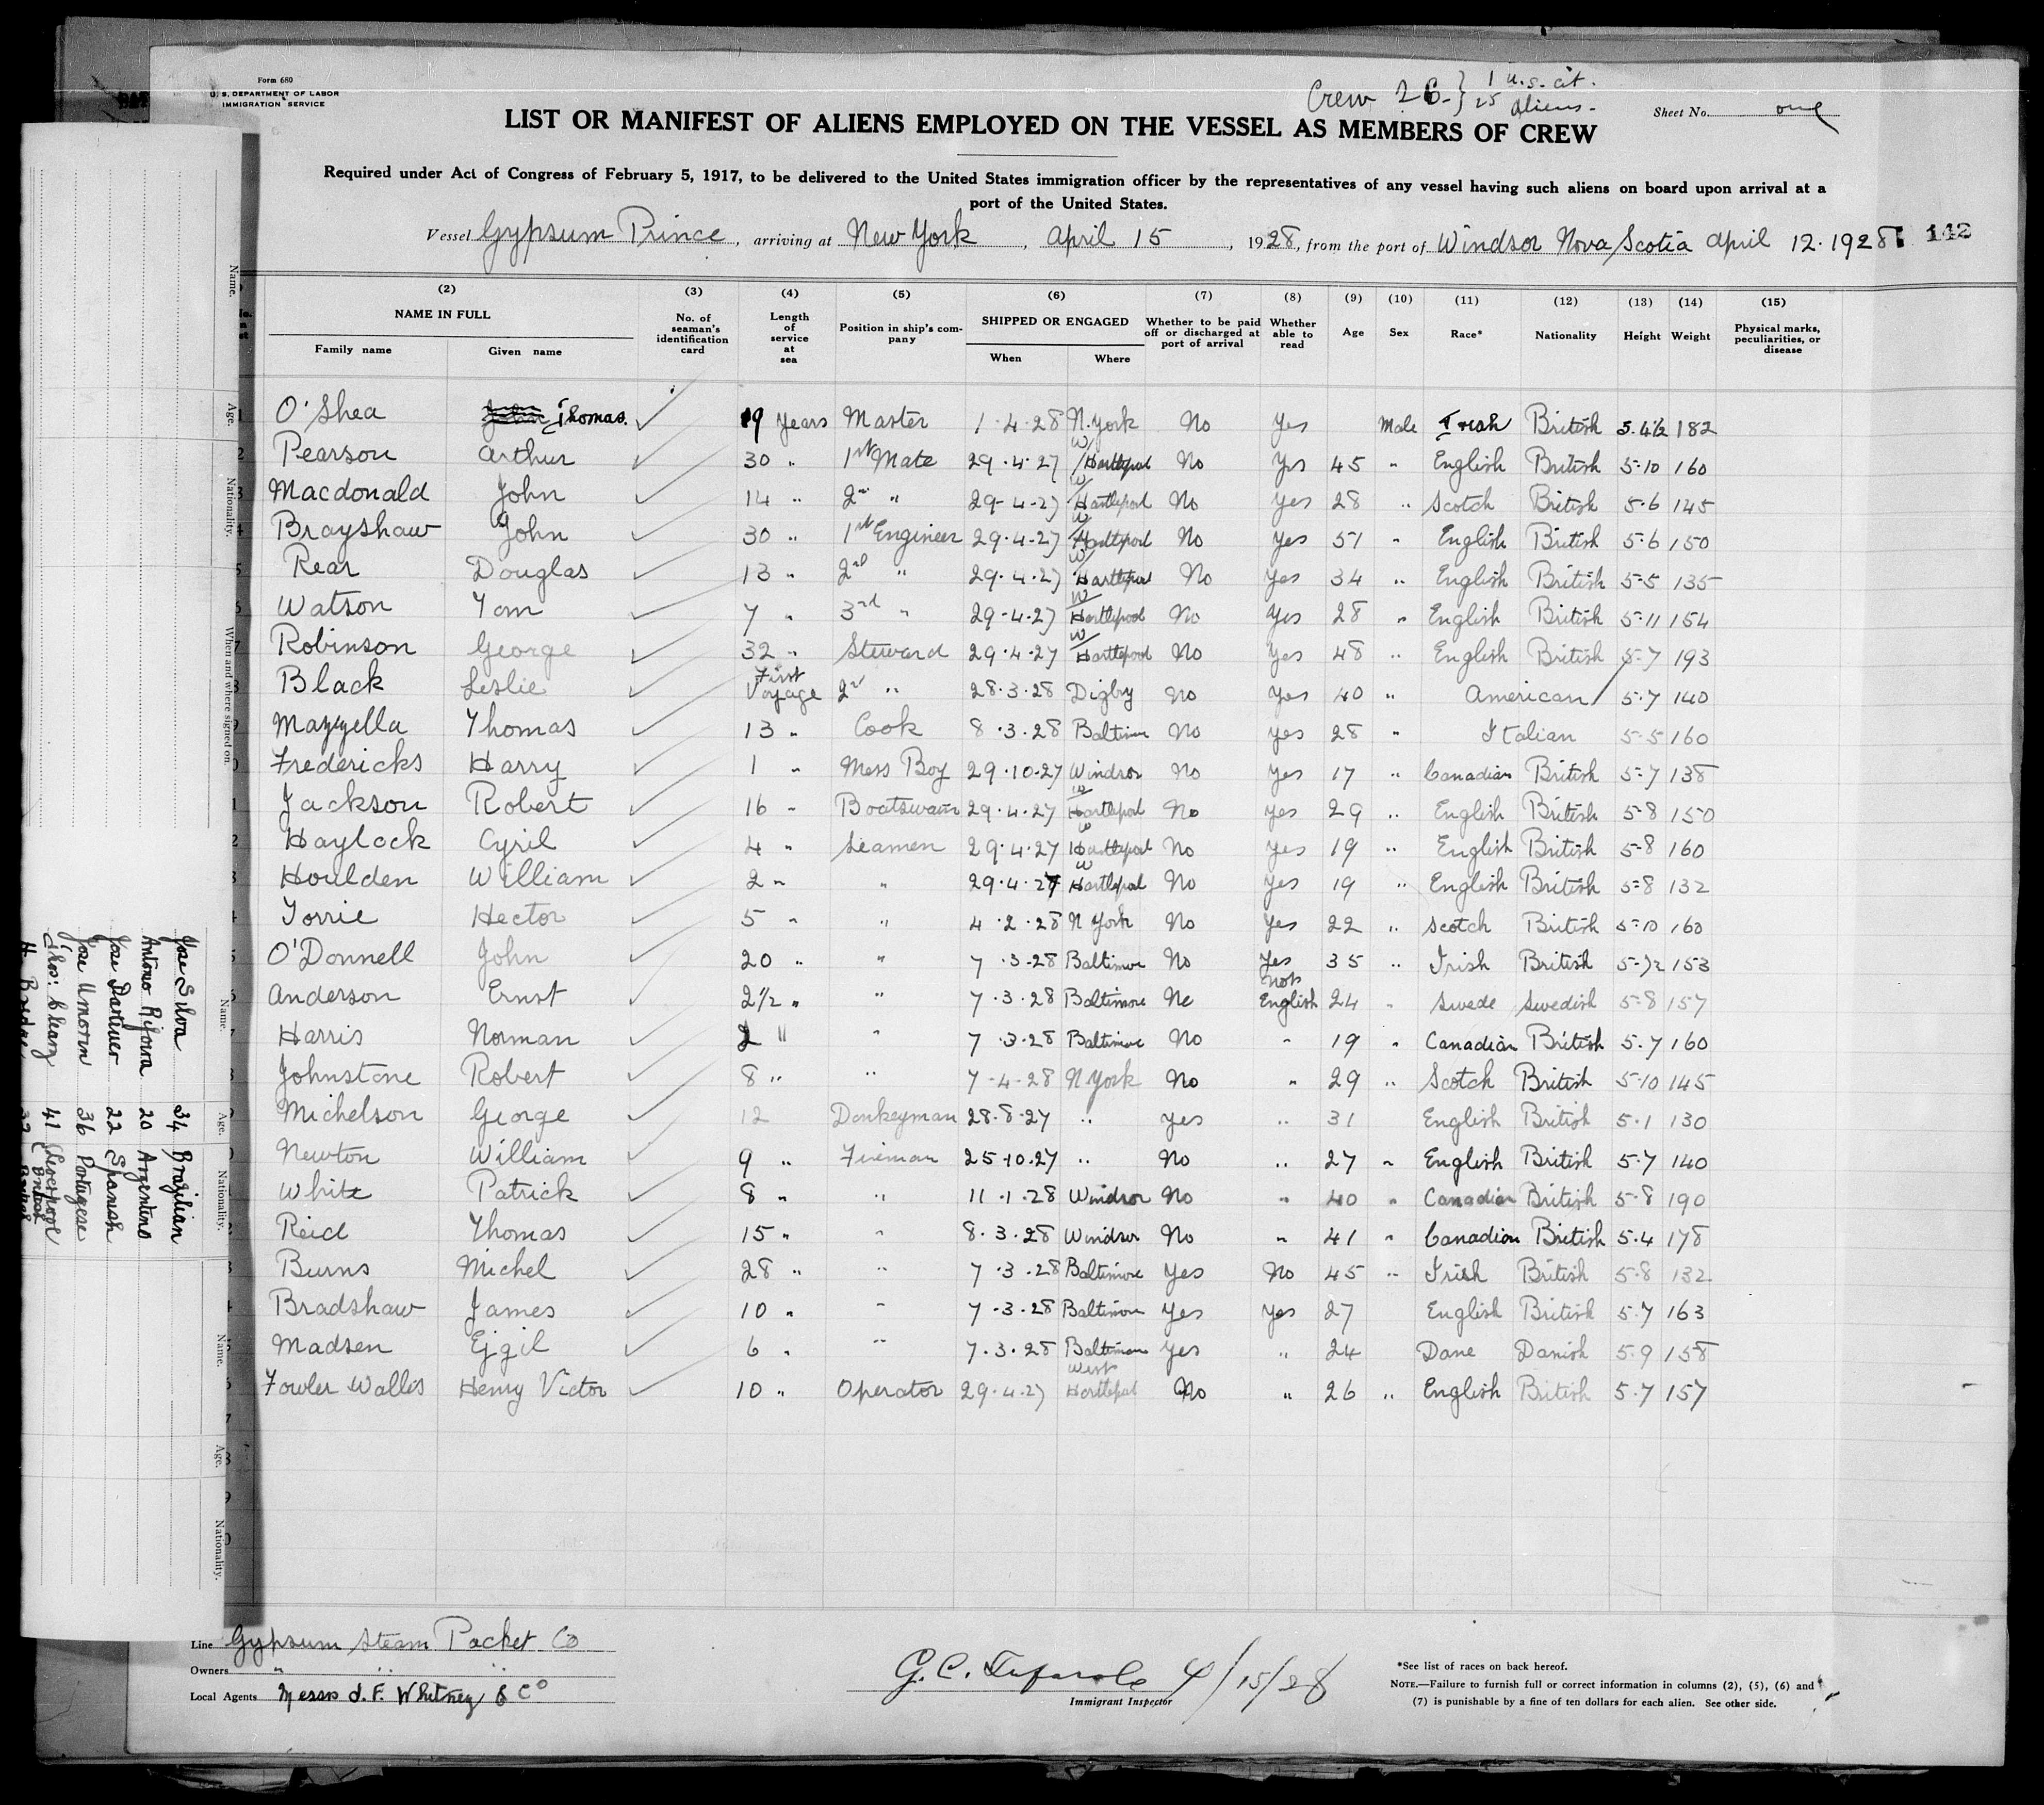 Form 680
U. S. DEPARTMENT OF LABOR
IMMIGRATION SERVICE
Crew 26 } 1 U.S. cit.
25 Aliens
Sheet No. one
LIST OR MANIFEST OF ALIENS EMPLOYED ON THE VESSEL AS MEMBERS OF CREW
Required under Act of Congress of February 5, 1917, to be delivered to the United States immigration officer by the representatives of any vessel having such aliens on board upon arrival at a
port of the United States.
Vessel Gypsum Prince, arriving at New York, April 15, 1928, from the port of Windsor Nova Scotia April 12. 1928 142
(2) (3) (4) (5) (6) (7) (8) (9) (10) (11) (12) (13) (14) (15)
NAME IN FULL No. of seaman's identification card Length of service at sea Position in ship's company SHIPPED OR ENGAGED Whether to be paid off or discharged at port of arrival Whether able to read Age Sex Race* Nationality Height Weight Physical marks, peculiarities, or disease
Family name Given name When Where
O'Shea Thomas. 19 Years Master 1.4.28 N.York No Yes Male Irish British 5.4½ 182
Pearson Arthur 30 " 1st Mate 29.4.27 W/Hartlepool No Yes 45 " English British 5-10 160
Macdonald John 14 " 2nd " 29-4-27 W/Hartlepool No Yes 28 " Scotch British 5.6 145
Brayshaw John 30 " 1st Engineer 29.4.27 W/Hartlepool No Yes 51 " English British 5.6 150
Rear Douglas 13 " 2nd " 29.4.27 W/Hartlepool No Yes 34 " English British 5-5 135
Watson Tom 7 " 3rd " 29.4.27 W/Hartlepool No Yes 28 " English British 5-11 154
Robinson George 32 " Steward 29.4.27 W/Hartlepool No Yes 48 " English British 5-7 193
Black Leslie First Voyage 2nd " 28.3.28 Digby No Yes 40 " American 5.7 140
Mazzella Thomas 13 " Cook 8.3.28 Baltimore No Yes 28 " Italian 5-5 160
Fredericks Harry 1 " Mess Boy 29.10.27 Windsor No Yes 17 " Canadian British 5-7 138
Jackson Robert 16 " Boatswain 29.4.27 W/Hartlepool No Yes 29 " English British 5-8 150
Haylock Cyril 4 " Seamen 29.4.27 W Hartlepool No Yes 19 " English British 5-8 160
Houlden William 2 " " 29.4.27 W Hartlepool No Yes 19 " English British 5-8 132
Torrie Hector 5 " " 4.2.28 N York No Yes 22 " Scotch British 5-10 160
O'Donnell John 20 " " 7.3.28 Baltimore No Yes 35 " Irish British 153
Anderson Ernst 2½ " " 7.3.28 Baltimore No not English 24 " Swede Swedish 5-8 157
Harris Norman 2 " " 7.3.28 Baltimore No " 19 " Canadian British 5.7 160
Johnstone Robert 8 " " 7-4-28 N York No " 29 " Scotch British 5-10 145
Michelson George 12 Donkeyman 28.8.27 " Yes " 31 English British 5.1 130
Newton William 9 " Fireman 25.10.27 " No " 27 " English British 5.7 140
White Patrick 8 " " 11.1.28 Windsor No " 40 " Canadian British 5.8 190
Reid Thomas 15 " " 8.3.28 Windsor No " 41 " Canadian British 5.4 178
Burns Michel 28 " " 7.3.28 Baltimore Yes No 45 " Irish British 5.8 132
Bradshaw James 10 " " 7.3.28 Baltimore Yes Yes 27 English British 5.7 163
Madsen Ejgil 6 " " 7.3.28 Baltimore Yes " 24 Dane Danish 5.9 158
Fowler Wallis Henry Victor 10 " Operator 29.4.27 West Hartlepool No " 26 " English British 5.7 157
Line Gypsum Steam Packet Co
Owners " " "
Local Agents Messrs J. F. Whitney & Co
G. C. 4/15/28
Immigrant Inspector
*See list of races on back hereof.
NOTE.—Failure to furnish full or correct information in columns (2), (5), (6) and
(7) is punishable by a fine of ten dollars for each alien. See other side.
Name. Age. Nationality. When and where signed on.
Name. Age. Nationality.
Name. Age. Nationality.
Jose Silva 34 Brazilian
Antonio 20 Argentino
Jose 22 Spanish
Jose Umorin 36 Portagese
Thos: 41 Liverpool British